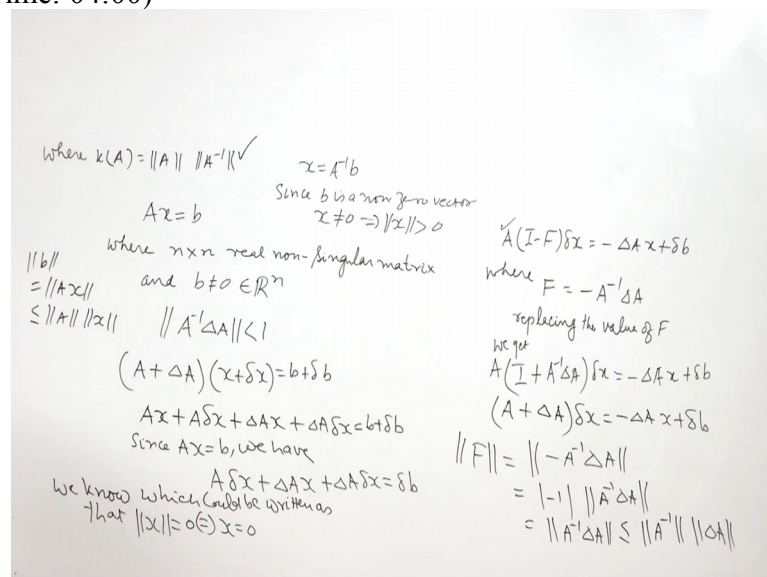 Time: 04:00)
where k(A) = ||A|| ||A⁻¹|| ✓
x = A⁻¹b
Since b is a non zero vector
x ≠ 0 ⇒ ||x|| > 0
Ax = b
where n×n real non-singular matrix
and b ≠ 0 ∈ ℝⁿ
||b||
= ||Ax||
≤ ||A|| ||x||
||A⁻¹ΔA|| < 1
(A + ΔA)(x + δx) = b + δb
Ax + Aδx + ΔAx + ΔAδx = b + δb
Since Ax = b, we have
Aδx + ΔAx + ΔAδx = δb
which could be written as
we know
that ||x|| = 0 ⇔ x = 0
✓
A(I - F)δx = - ΔAx + δb
where
F = - A⁻¹ΔA
replacing the value of F
we get
A(I + A⁻¹ΔA)δx = - ΔAx + δb
(A + ΔA)δx = - ΔAx + δb
||F|| = ||- A⁻¹ΔA||
= |-1| ||A⁻¹ΔA||
= ||A⁻¹ΔA|| ≤ ||A⁻¹|| ||ΔA||